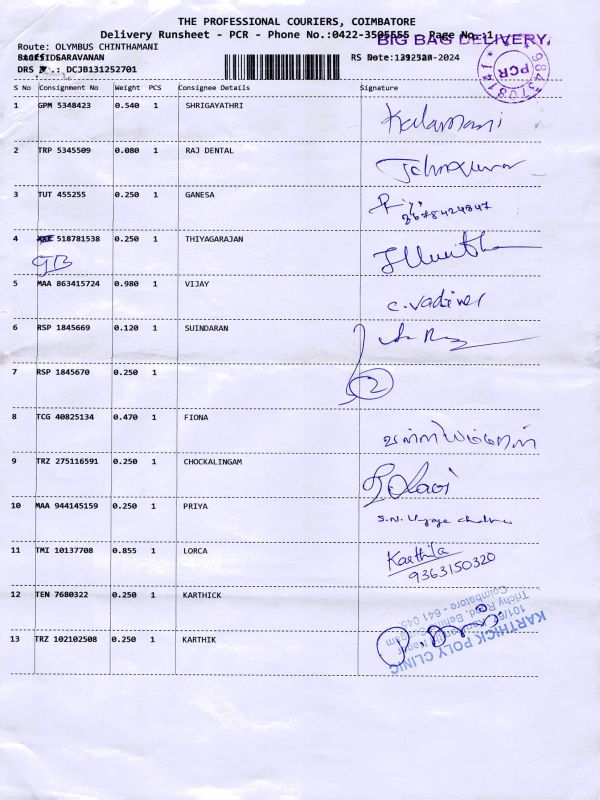 THE PROFESSIONAL COURIERS, COIMBATORE
Delivery Runsheet - PCR - Phone No.:0422-3505555 Page No.:1
BIG BAG DELIVERY
Route: OLYMBUS CHINTHAMANI
SARAVANAN
DRS No.: DCJB131252701
PCR
S No Consignment No Weight PCS Consignee Details Signature
1 GPM 5348423 0.540 1 SHRIGAYATHRI Kalamani
2 TRP 5345509 0.080 1 RAJ DENTAL
3 TUT 455255 0.250 1 GANESA
8678424847
4 518781538 0.250 1 THIYAGARAJAN
GB
5 MAA 863415724 0.980 1 VIJAY C. Vadivel
6 RSP 1845669 0.120 1 SUINDARAN
7 RSP 1845670 0.250 1 2
8 TCG 40825134 0.470 1 FIONA
9 TRZ 275116591 0.250 1 CHOCKALINGAM
10 MAA 944145159 0.250 1 PRIYA
11 TMI 10137708 0.855 1 LORCA Karthika
9363150320
12 TEN 7680322 0.250 1 KARTHICK
13 TRZ 102102508 0.250 1 KARTHIK
KARTHICK POLY CLINIC
Trichy Road,
Coimbatore - 641 045.